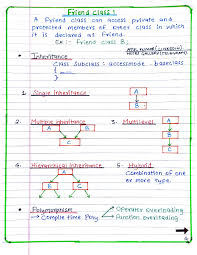 Friend class:
A Friend class can access private and
protected members of other class in which
it is declared as Friend.
Ex :- Friend class B;
Inheritance
class Subclass : accessmode baseclass
{
}
1. Single Inheritance
A
B
2. Multiple Inheritance
A B
C
3. Multilevel
A
B
C
4. Hierarchical Inheritance
A
B C
5. Hybrid
Combination of one
or more type.
Polymorphism
Compile time Poly
Operator overloading
Function overloading